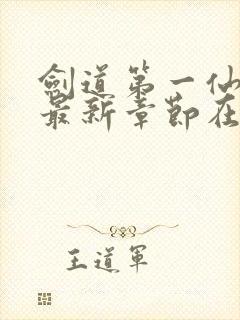 劍道第一仙
最新章節在
王道軍